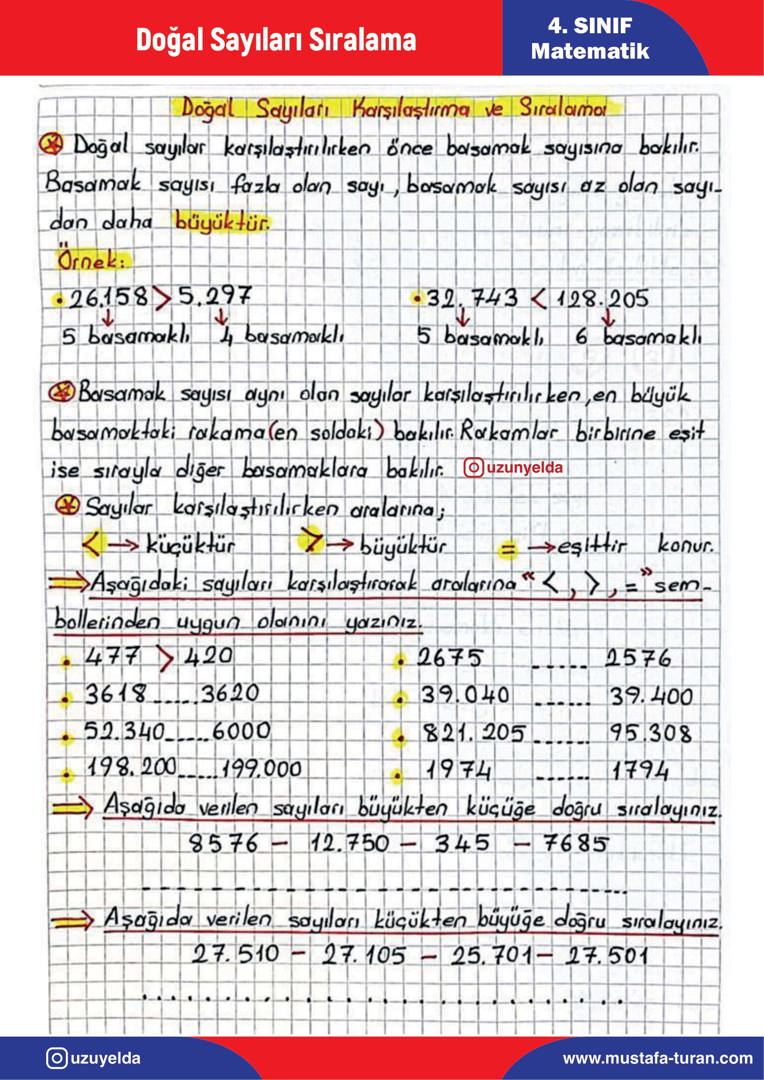 Doğal Sayıları Sıralama
4. SINIF
Matematik
Doğal Sayıları Karşılaştırma ve Sıralama
Doğal sayılar karşılaştırılırken önce basamak sayısına bakılır.
Basamak sayısı fazla olan sayı, basamak sayısı az olan sayı-
dan daha büyüktür.
Örnek:
• 26.158 > 5.297 • 32.743 < 128.205
5 basamaklı 4 basamaklı 5 basamaklı 6 basamaklı
Basamak sayısı aynı olan sayılar karşılaştırılırken, en büyük
basamaktaki rakama (en soldaki) bakılır. Rakamlar birbirine eşit
ise sırayla diğer basamaklara bakılır. uzunyelda
Sayılar karşılaştırılırken aralarına;
< → küçüktür > → büyüktür = → eşittir konur.
⇒ Aşağıdaki sayıları karşılaştırarak aralarına "<, >, =" sem-
bollerinden uygun olanını yazınız.
• 477 > 420 • 2675 ...... 2576
• 3618 ..... 3620 • 39.040 ...... 39.400
• 52.340 ..... 6000 • 821.205 ...... 95.308
• 198.200 ..... 199.000 • 1974 ...... 1794
⇒ Aşağıda verilen sayıları büyükten küçüğe doğru sıralayınız.
8576 - 12.750 - 345 - 7685
⇒ Aşağıda verilen sayıları küçükten büyüğe doğru sıralayınız.
27.510 - 27.105 - 25.701 - 27.501
uzuyelda
www.mustafa-turan.com